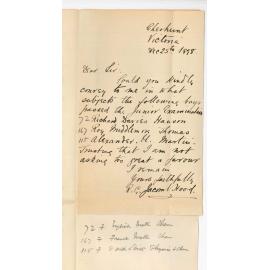 Cheshunt
Victoria
Dec 25th 1898
Dear Sir,
Could you kindly
convey to me in what
subjects the following boys
passed the Junior Examination
72 Richard Davies Hanson
167 Roy Middleton Thomas
115 Alexander H. Martin
Trusting that I am not
asking too great a favour
I remain
Yours faithfully
Jacomb Hood
72 7 English Math Chem
167 7 French Math Chem
115 8